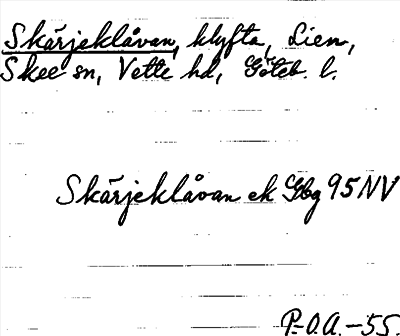 Skärjeklåvan, klyfta, Lien,
Skee sn, Vette hd, Göteb. l.
Skärjeklåvan ek Gbg 95 NV
P-O.A. -55.